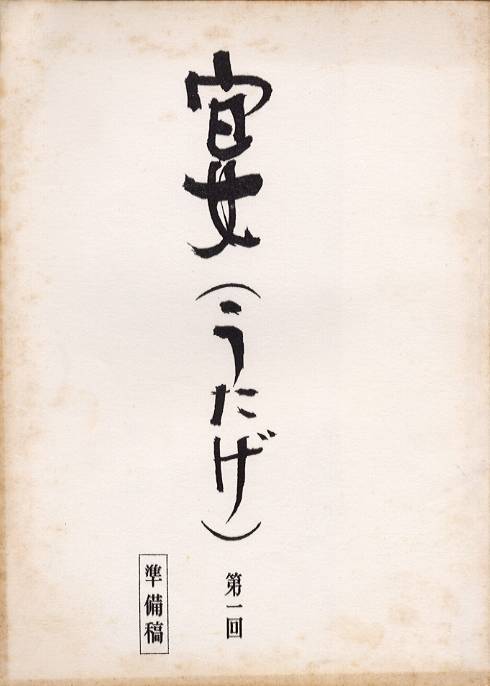 宴(うたげ)
第一回
準備稿